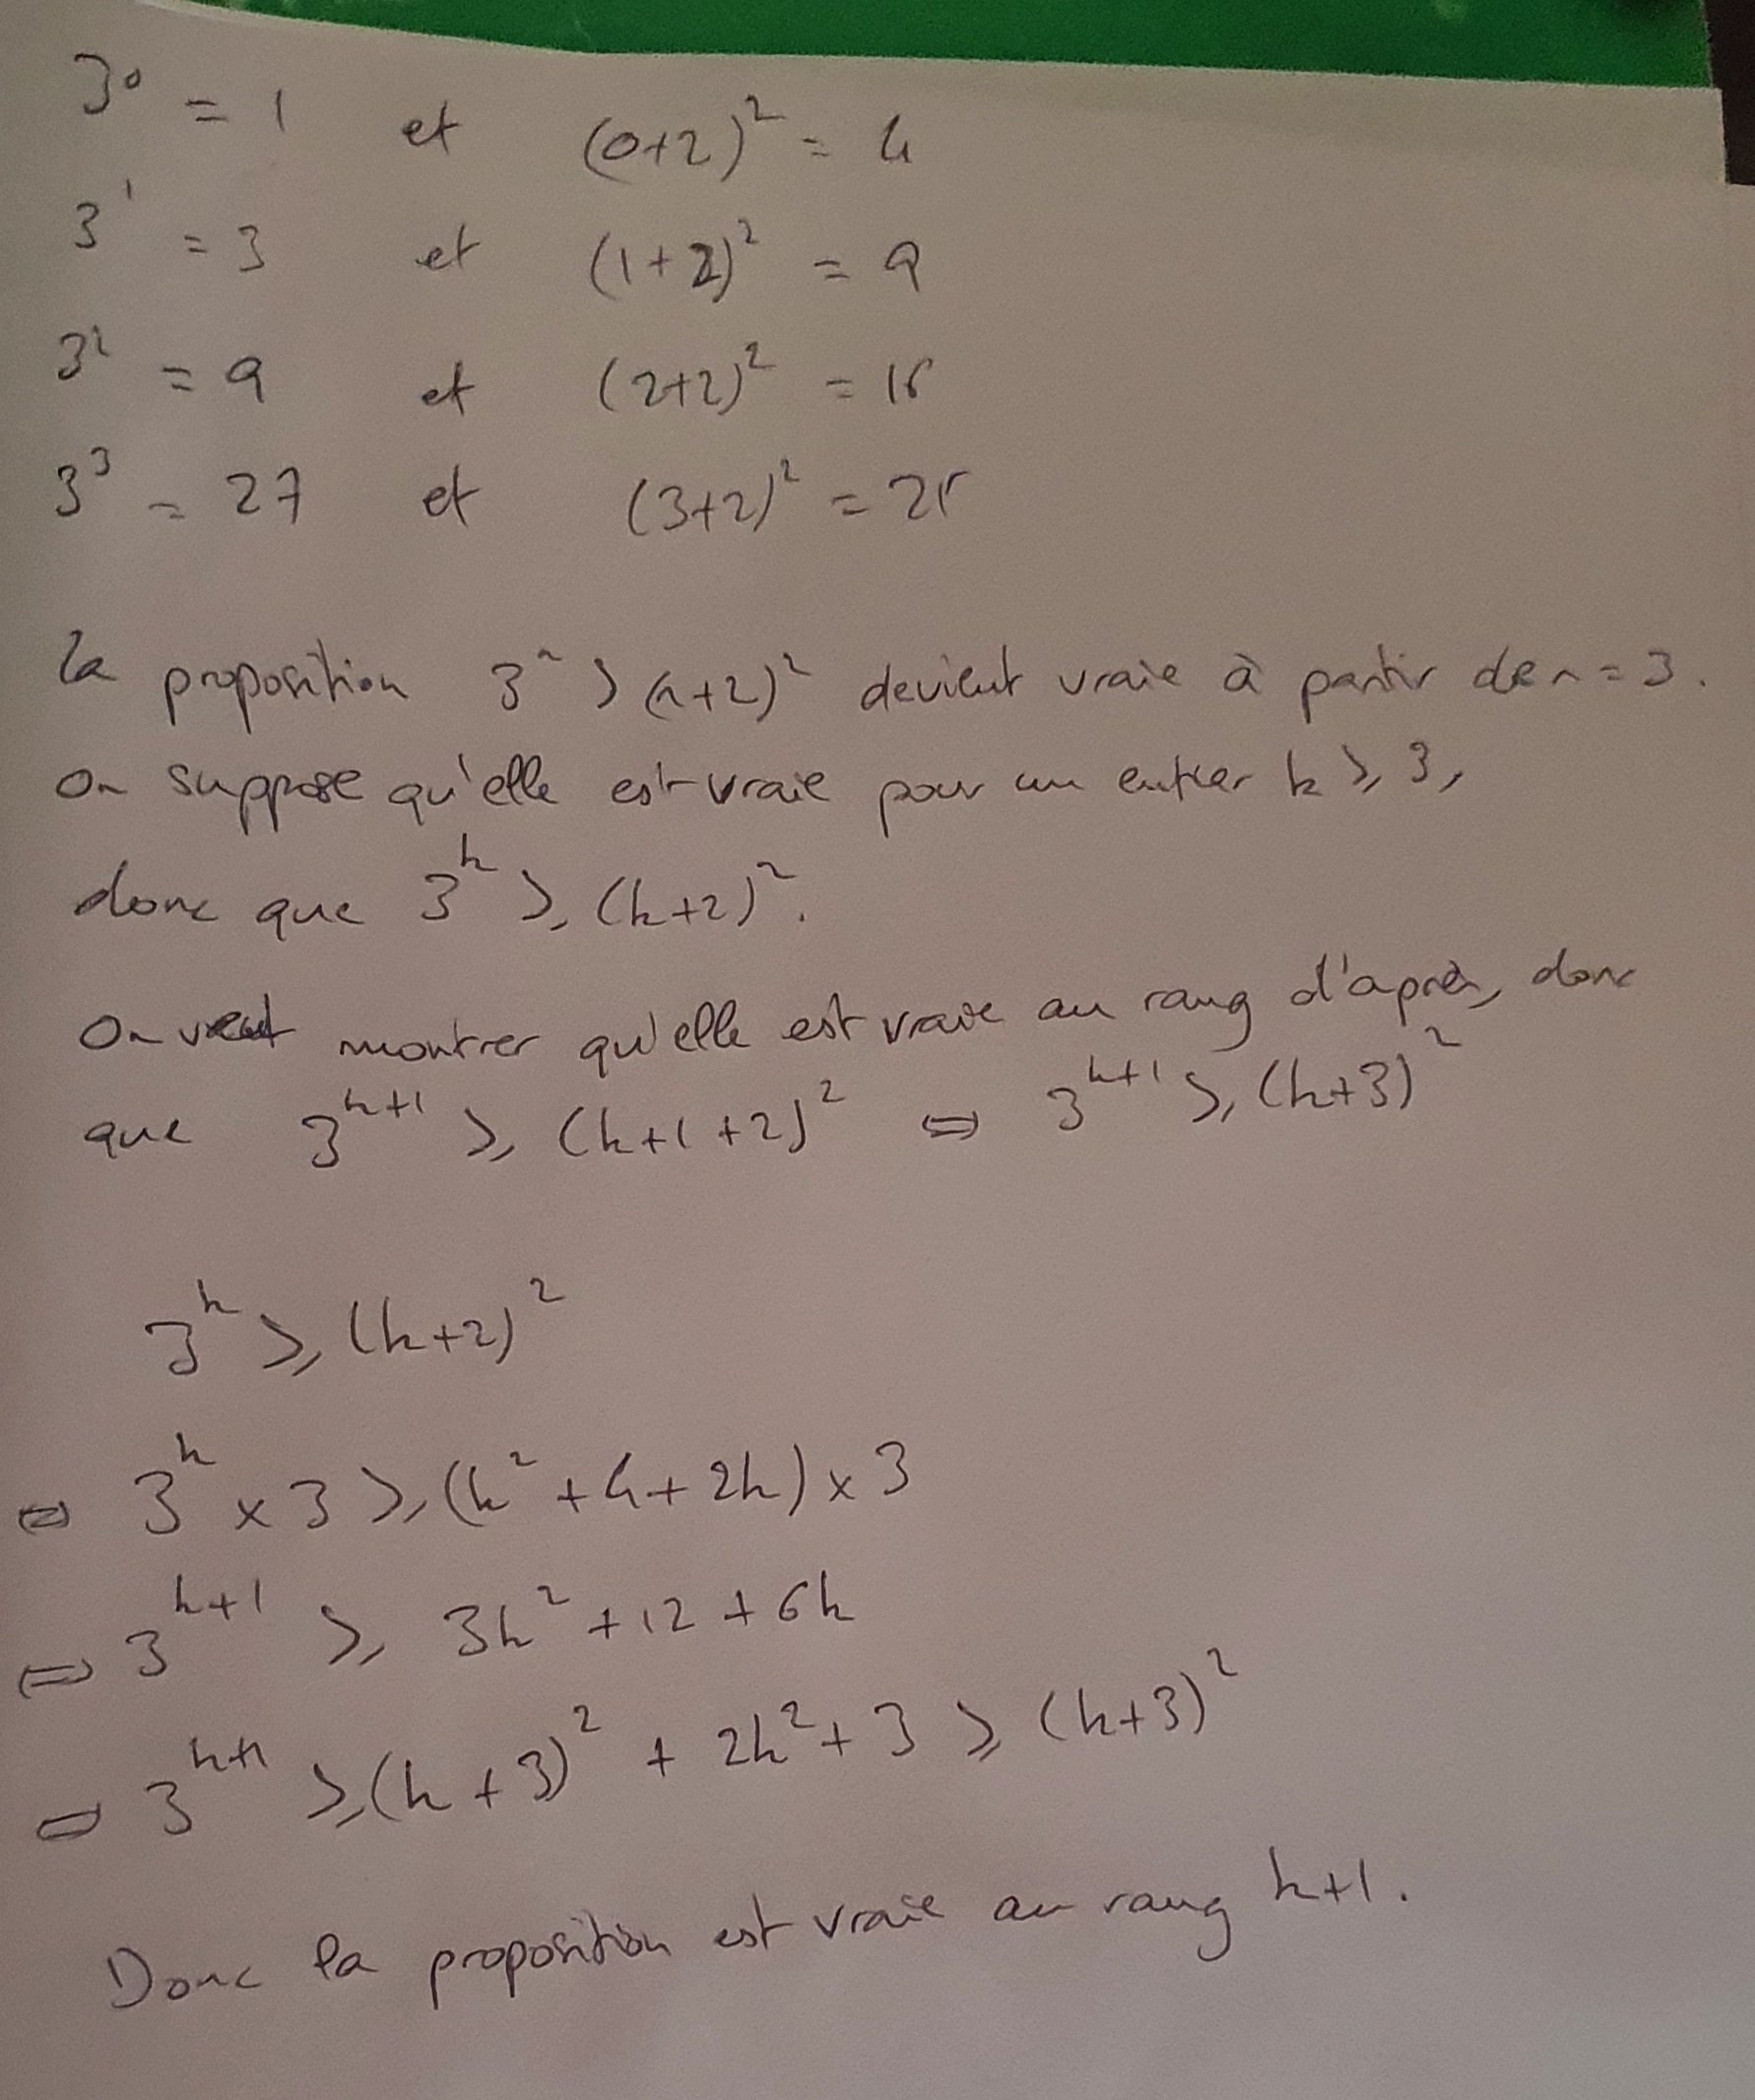 3⁰ = 1 et (0+2)² = 4
3¹ = 3 et (1+2)² = 9
3² = 9 et (2+2)² = 16
3³ = 27 et (3+2)² = 25
La proposition 3ⁿ ⩾ (n+2)² devient vraie à partir de n = 3.
On suppose qu'elle est vraie pour un entier k ⩾ 3,
donc que 3ᵏ ⩾ (k+2)².
On veut montrer qu'elle est vraie au rang d'après, donc
que 3ᵏ⁺¹ ⩾ (k+1+2)² ⇔ 3ᵏ⁺¹ ⩾ (k+3)²
3ᵏ ⩾ (k+2)²
⇔ 3ᵏ × 3 ⩾ (k² + 4 + 2k) × 3
⇔ 3ᵏ⁺¹ ⩾ 3k² + 12 + 6k
⇔ 3ᵏ⁺¹ ⩾ (k + 3)² + 2k² + 3 ⩾ (k+3)²
Donc la proposition est vraie au rang k+1.